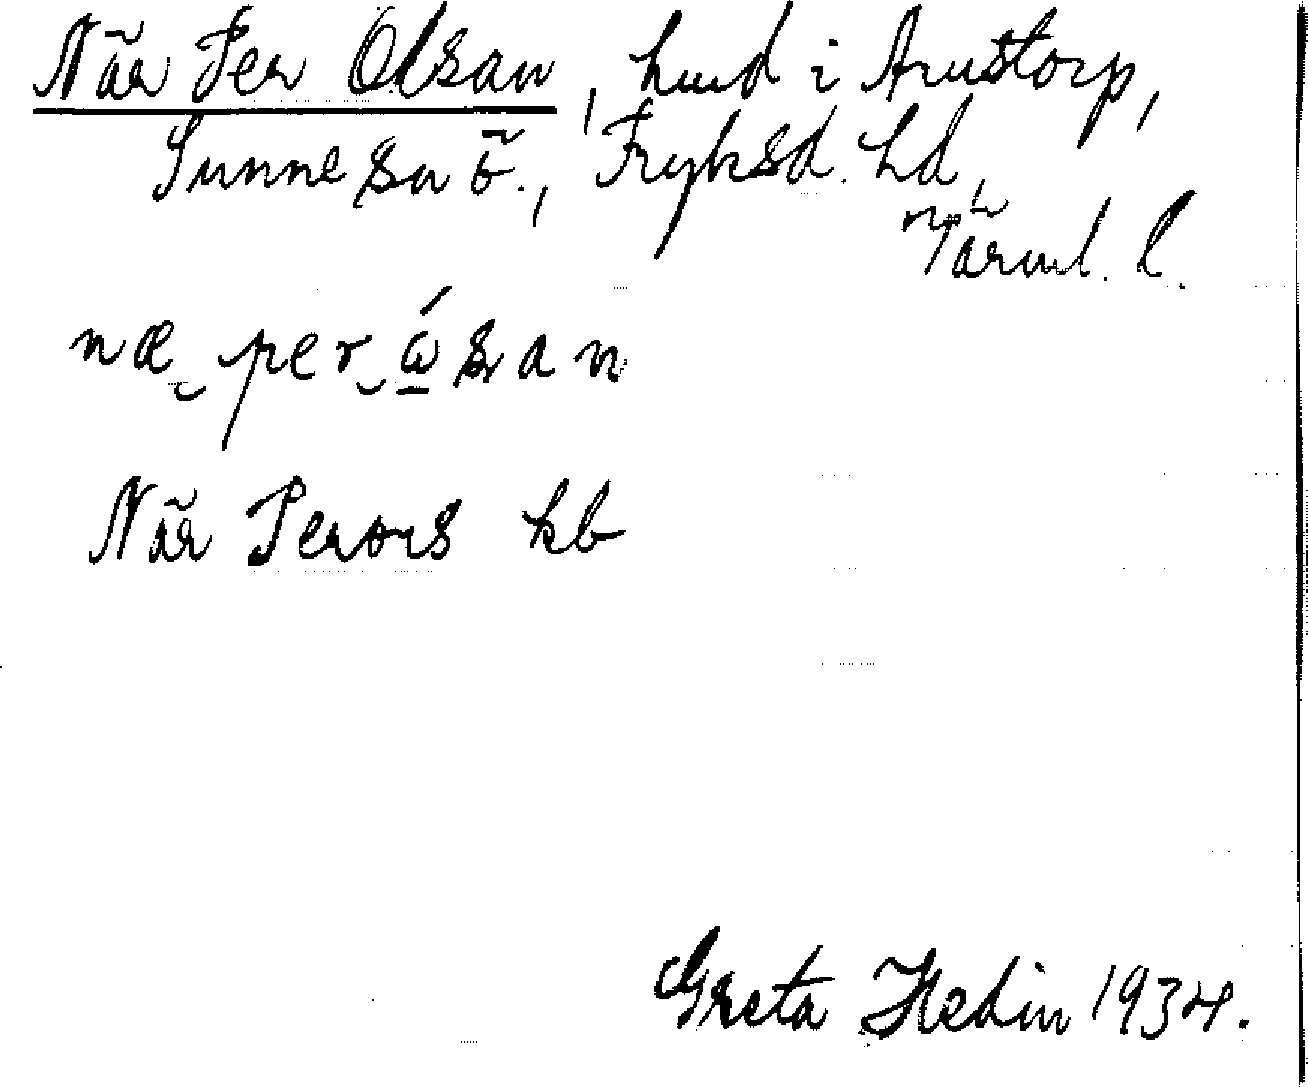 När Per Olsan, hmd i Arnstorp,
Sunne sn ö., Fryksd. hd,
Värml. l.
næ‿per‿ώsan
När Perors hb
Greta Hedin 1934.